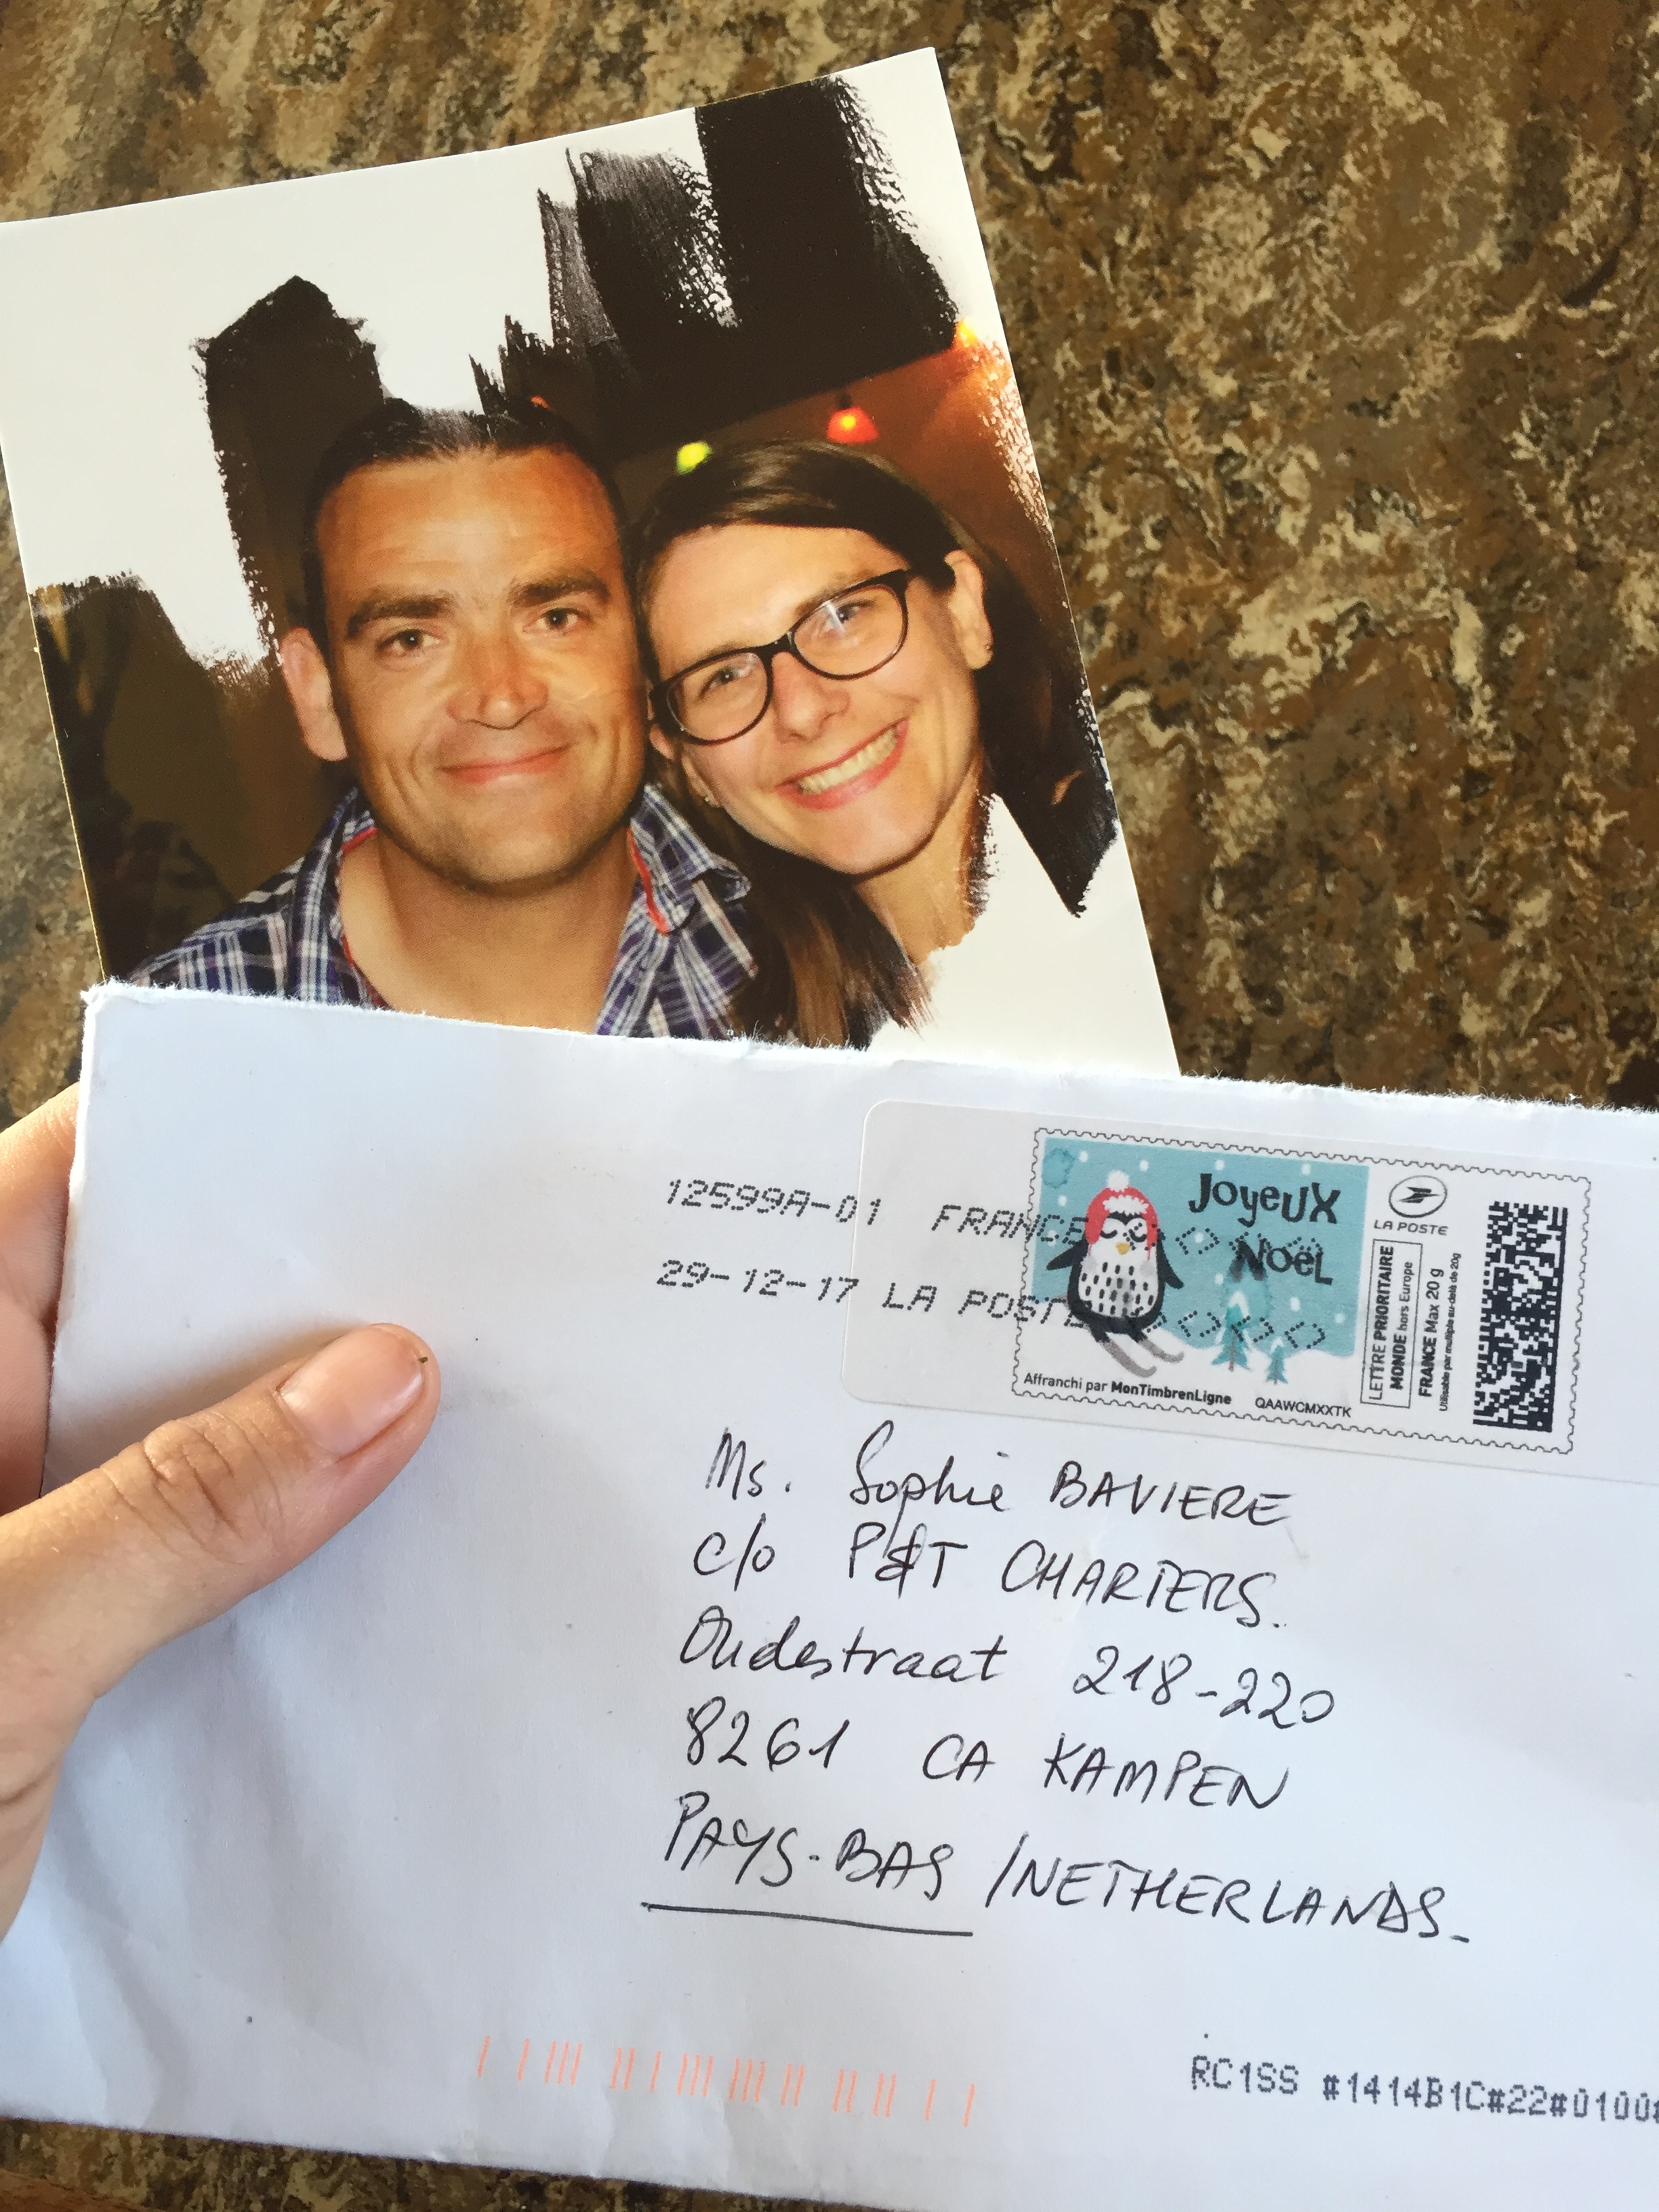 12599A-01 FRANCE
29-12-17 LA POSTE
Joyeux
Noël
LA POSTE
LETTRE PRIORITAIRE
MONDE hors Europe
FRANCE Max 20 g
Utilisable par multiple au-delà de 20g
Affranchi par MonTimbrenLigne QAAWCMXXTK
Ms. Sophie BAVIERE
c/o P&T CHARTERS.
Oudestraat 218-220
8261 CA KAMPEN
PAYS-BAS /NETHERLANDS.
RC1SS #1414B1C#22#0100#